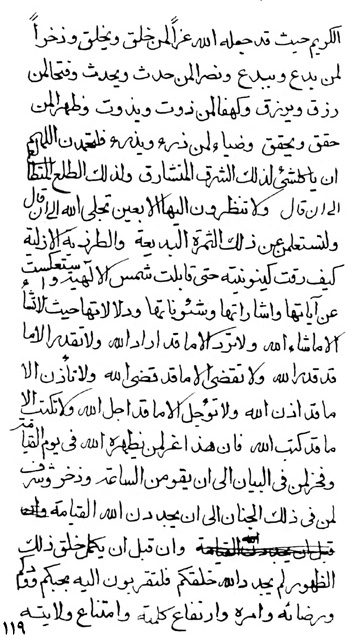 الكريم حيث قد جعله الله عزاً لمن خلق ويخلق وذخراً
لمن بدع ويبدع ونصر المن حدث ويحدث وفتحا لمن
رزق ويرزق وكهفا لمن ذوت ويذوت وظهر المن
حقق ويحقق وضياء لمن ذرء ويذرء فلتحمدن اللهم
ان يا كلشئ لذلك الشرف المتشارق ولذلك الطلع
الى ان قال ولا تنظرون اليها الا بعين تجلى الله الى ان قال
ولتستعلمن عن ذلك الثمرة البديعة والطرزية الازلية
كيف رقت كينونيته حتى قابلت شمس الالهية واستعكست
عن آياتها واشاراتها وشئوناتها ودلالاتها حيث لا تشاء
الا ما شاء الله ولا ترد الا ما قد اراد الله ولا تقدر الا ما
قد قدر الله ولا تقضى الا ما قد قضى الله ولا تأذن الا
ما قد اذن الله ولا تؤجل الا ما قد اجل الله ولا تكتب الا
ما قد كتب الله فان هذا اعز لمن يظهره الله فى يوم القيامة
وفخر لمن فى البيان الى ان يقومن الساعة وذخر وشرف
لمن فى ذلك الجنان الى ان يجددن الله القيامة وان
قبل ان يجددن الله القيامة وان قبل ان يكمل خلق ذلك
الظهور لم يجدد الله خلقكم فلتقربون اليه بحبكم
ورضائه وامره وارتفاع كلمته وامتناع ولايته
١١٩